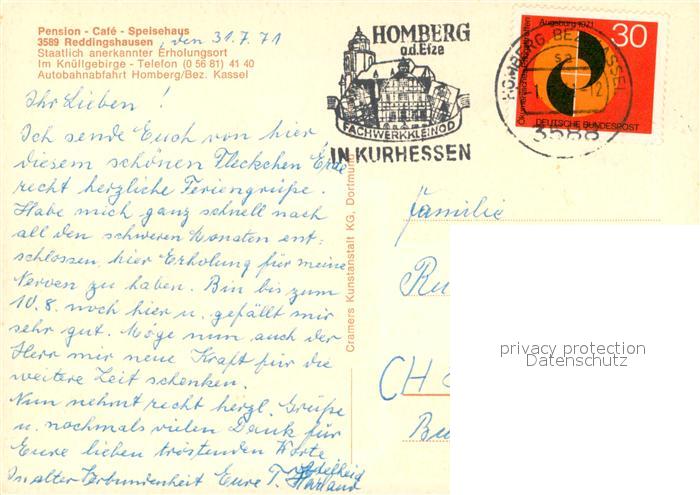 Pension - Café - Speisehaus
3589 Reddingshausen, den 31.7.71
Staatlich anerkannter Erholungsort
Im Knüllgebirge - Telefon (0 56 81) 41 40
Autobahnabfahrt Homberg/Bez. Kassel
Ihr Lieben!
Ich sende Euch von hier
diesem schönen Fleckchen Erde
recht herzliche Feriengrüße.
Habe mich ganz schnell nach
all den schweren Monaten ent-
schlossen, hier Erholung für meine
Nerven zu haben. Bin bis zum
10.8. noch hier u. gefällt mir
sehr gut. Möge nun auch der
Herr mir neue Kraft für die
weitere Zeit schenken.
Nun nehmt recht herzl. Grüße
u. nochmals vielen Dank für
Eure lieben tröstenden Worte
In alter Verbundenheit Eure T. Adelheid
Cramers Kunstanstalt KG, Dortmund
HOMBERG
a.d.Efze
FACHWERKKLEINOD
IN KURHESSEN
HOMBERG, BEZ. KASSEL
sa
12
3588
Ökumenisches Pfingsttreffen
Augsburg 1971
30
DEUTSCHE BUNDESPOST
Familie
Ru
CH
Bu
privacy protection
Datenschutz